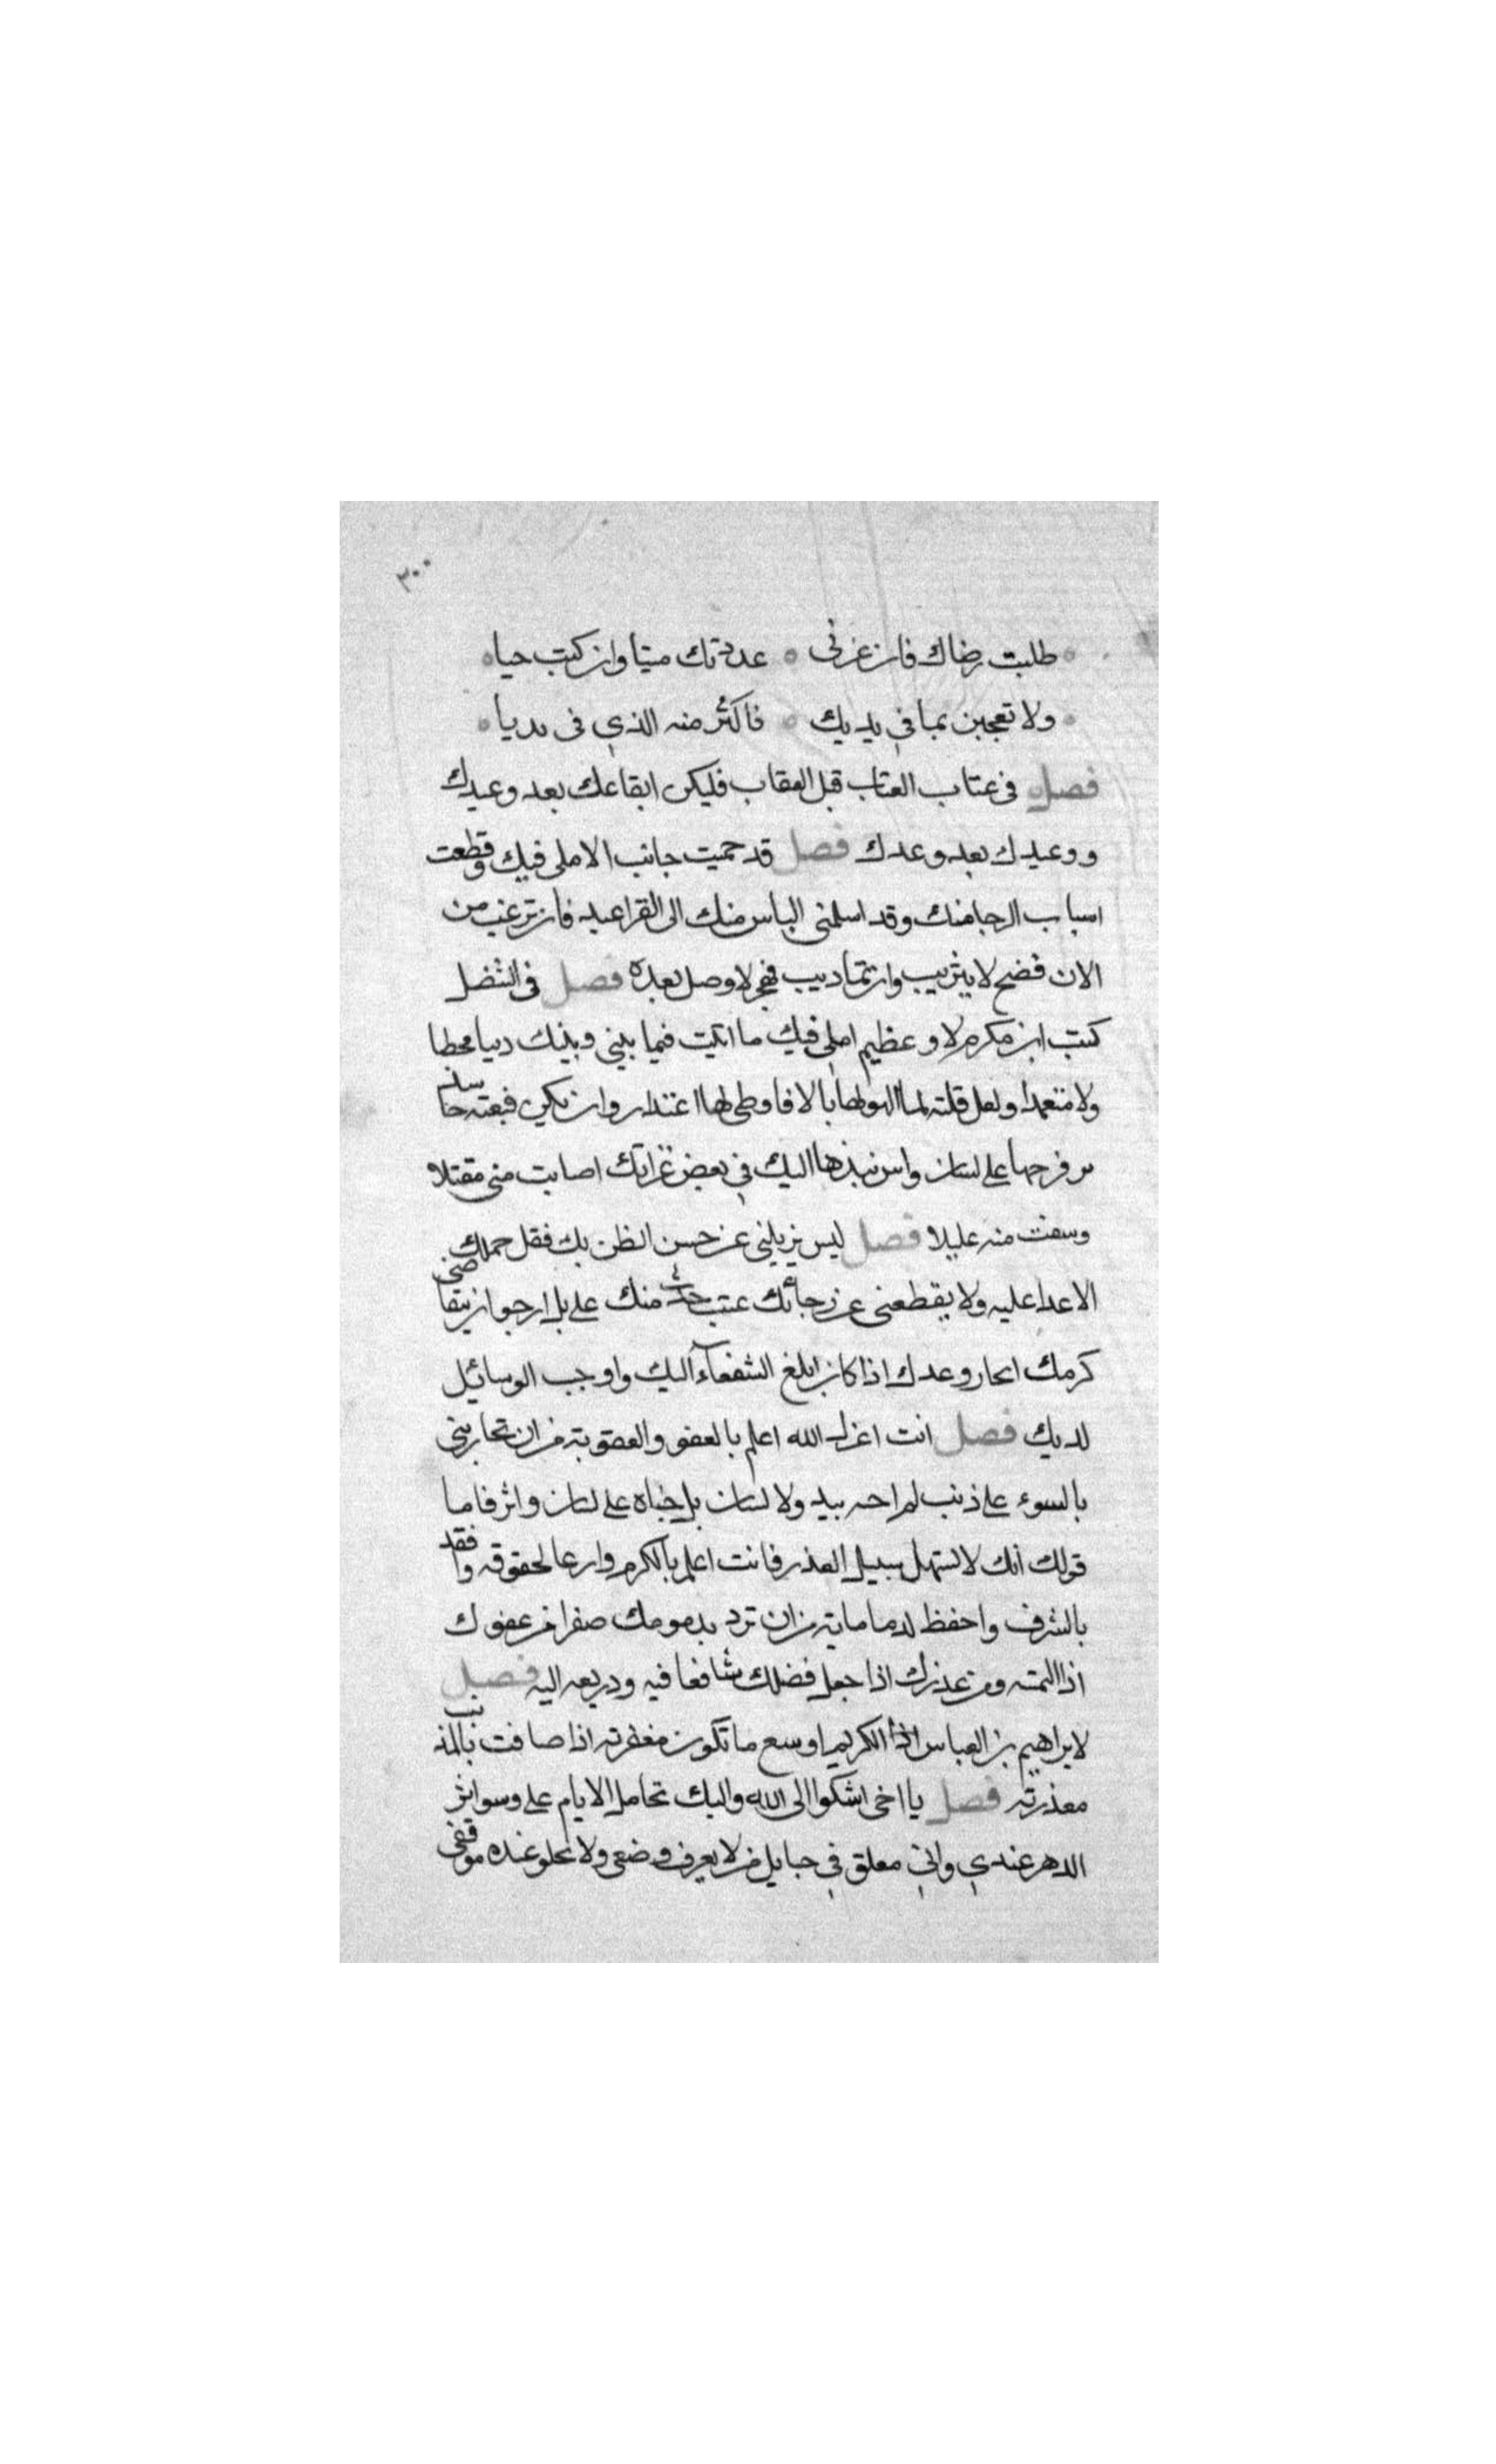 ٣٠٠
طلبت رضاك فان عزني عددتك ميتا وان كنت حيا
ولا تعجبن بما في يديك فاكثر منه الذي في يديا
فصل في عتاب العتاب قبل العقاب فليكن ايقاعك بعد وعيدك
ووعيدك بعد وعدك فصل قد حميت جانب الامل فيك وقطعت
اسباب الرجا منك وقد اسلمني الياس منك الى العزا عنه فان ترغب من
الان فصفح لا تثريب وان تماديت فهجر لا وصل بعده فصل في التنصل
كتب ابن مكرم لا وعظيم املي فيك ما اتيت فيما بيني وبينك ذنبا مخطيا
ولا متعمدا ولعل فلتة لها بالا فاوطي لها اعتذار وان تكن
على لسان واش نبذها اليك في بعض غراتك اصابت مني مقتلا
وسفت منه عليلا فصل ليس يزيلني عن حسن الظن بك فعل حملك
الاعدا عليه ولا يقطعني عن رجائك عتب حدث منك علي بل ارجو ان يتقاضى
كرمك انجاز وعدك اذا كان ابلغ الشفعاء اليك واوجب الوسائل
لديك فصل انت اعزك الله اعلم بالعفو والعقوبة من ان تجازيني
بالسوء على ذنب لم اجنه بيد ولا لسان بل جناه علي لسان واش فاما
قولك انك لا تسهل سبيل العذر فانت اعلم بالكرم وارعا لحقوقه واقعد
بالشرف واحفظ لذماماته من ان ترد يد مومك صفرا من عفوك
اذا التمسه ومن عذرك اذا جعل فضلك شافعا فيه وذريعه اليه فصل
لابراهيم بن العباس اذا الكريم اوسع ما تكون مغفرته اذا ضاقت بالذنب
معذرته فصل يا اخي اشكوا الى الله واليك تحامل الايام علي وسو اثر
الدهر عندي واني معلق في حبايل من لا يعرف وضعي ولا يحلو عنده موقفي